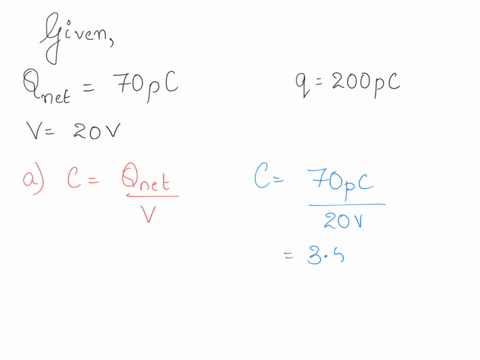 Given,
Qnet = 70pC q = 200pC
V = 20V
a) C = Qnet / V C = 70pC / 20V
= 3.